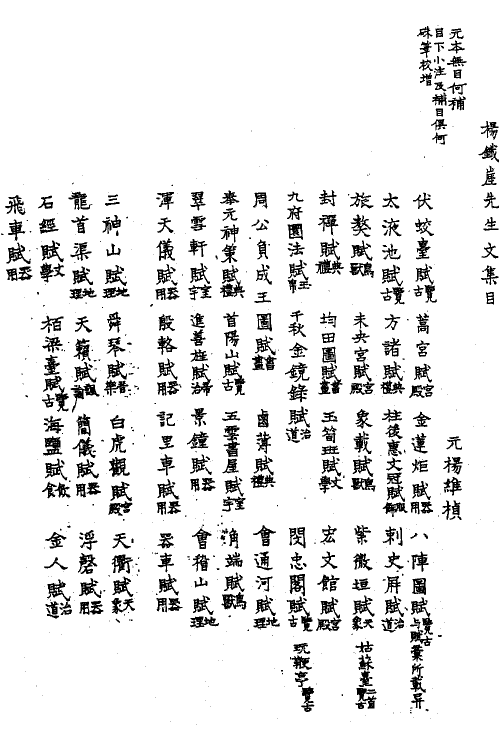 楊鐵崖先生文集目
元楊維楨
元本無目何補
目下小注及補目俱何
硃筆校增
伏蛟臺賦覽古 蒿宮賦宮殿 金蓮炬賦器用 八陣圖賦覽古与賦彙所載異
太液池賦覽古 方諸賦典禮 柱後惠文冠賦服飾 刺史屏賦治道
旅獒賦鳥獸 未央宮賦宮殿 象載賦鳥獸 紫微垣賦天象 姑蘇臺二首覽古
封禪賦典禮 均田圖賦書畫 玉筍班賦文學 宏文館賦宮殿
九府圜法賦玉帛 千秋金鏡錄賦治道 閔忠閣賦覽古 玩鞭亭覽古
周公負成王圖賦書畫 鹵薄賦典禮 會通河賦地理
泰元神策賦典禮 首陽山賦覽古 五雲書屋賦室宇 角端賦鳥獸
翠雲軒賦室宇 進善旌賦治 景鐘賦器用 會稽山賦地理
渾天儀賦器用 殷輅賦器用 記里車賦器用 器車賦器用
三神山賦地理 舜琴賦音樂 白虎觀賦宮殿 天衢賦天象
龍首渠賦地理 天籟賦 簡儀賦器用 浮磬賦器用
石經賦文學 柏梁臺賦覽古 海鹽賦飲食 金人賦治道
飛車賦器用